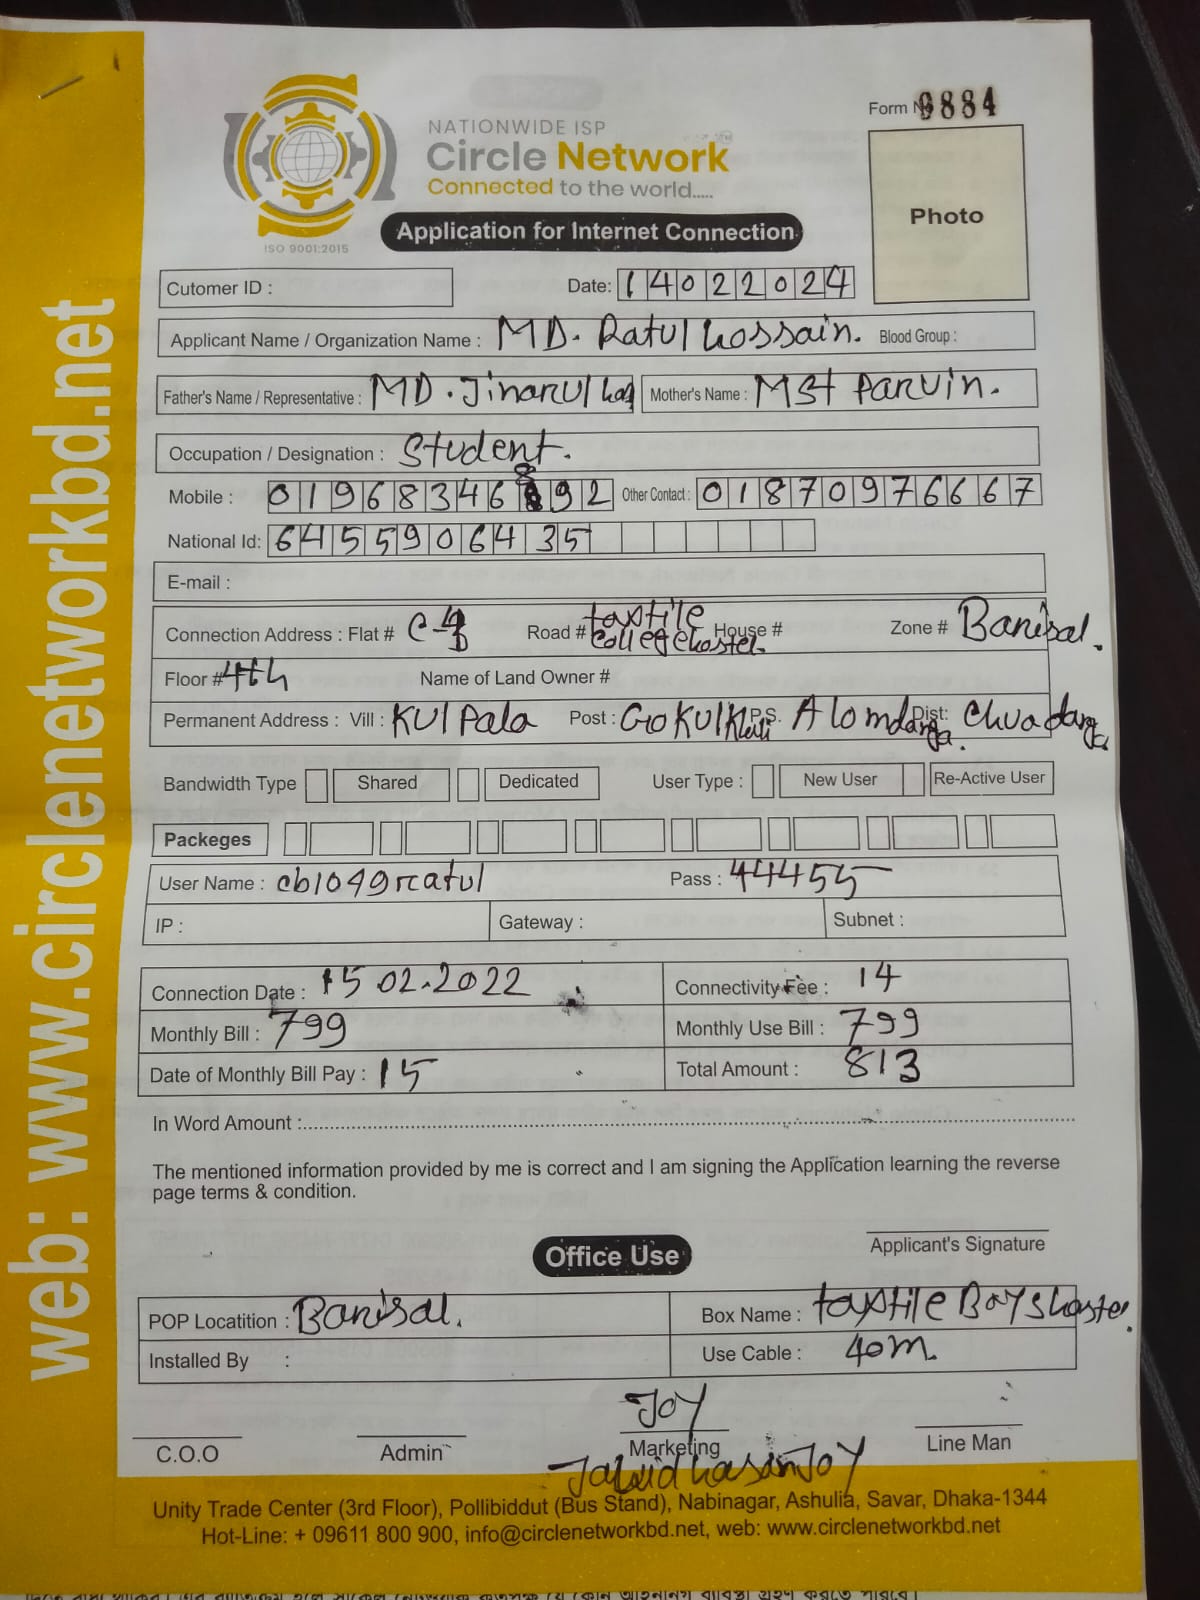 web: www.circlenetworkbd.net
Form No 9884
NATIONWIDE ISP
Circle Network
Connected to the world.....
ISO 9001:2015
Application for Internet Connection
Photo
Cutomer ID :
Date: 14022024
Applicant Name / Organization Name : MD. Ratul Hossain. Blood Group :
Father's Name / Representative : MD. Jinarul Mother's Name : MSt Parvin.
Occupation / Designation : Student.
Mobile : 01968346892 Other Contact : 01870976667
National Id: 6455906435
E-mail :
Connection Address : Flat # Road # taxtile College hostel. House # Zone # Barisal.
Floor # 4th Name of Land Owner #
Permanent Address : Vill : Kulpala Post : Gokulkhali P.S. Alomdanga. Dist: Chuadanga
Bandwidth Type Shared Dedicated User Type : New User Re-Active User
Packeges
User Name : cb1049ratul Pass : 44455
IP : Gateway : Subnet :
Connection Date : 15 02.2022 Connectivity Fee : 14
Monthly Bill : 799 Monthly Use Bill : 799
Date of Monthly Bill Pay : 15 Total Amount : 813
In Word Amount :
The mentioned information provided by me is correct and I am signing the Application learning the reverse
page terms & condition.
Applicant's Signature
Office Use
POP Locatition : Barisal. Box Name : taxtile Boys hostel.
Installed By : Use Cable : 40m.
Joy
C.O.O Admin Marketing Line Man
Jahid hasan Joy
Unity Trade Center (3rd Floor), Pollibiddut (Bus Stand), Nabinagar, Ashulia, Savar, Dhaka-1344
Hot-Line: + 09611 800 900, info@circlenetworkbd.net, web: www.circlenetworkbd.net